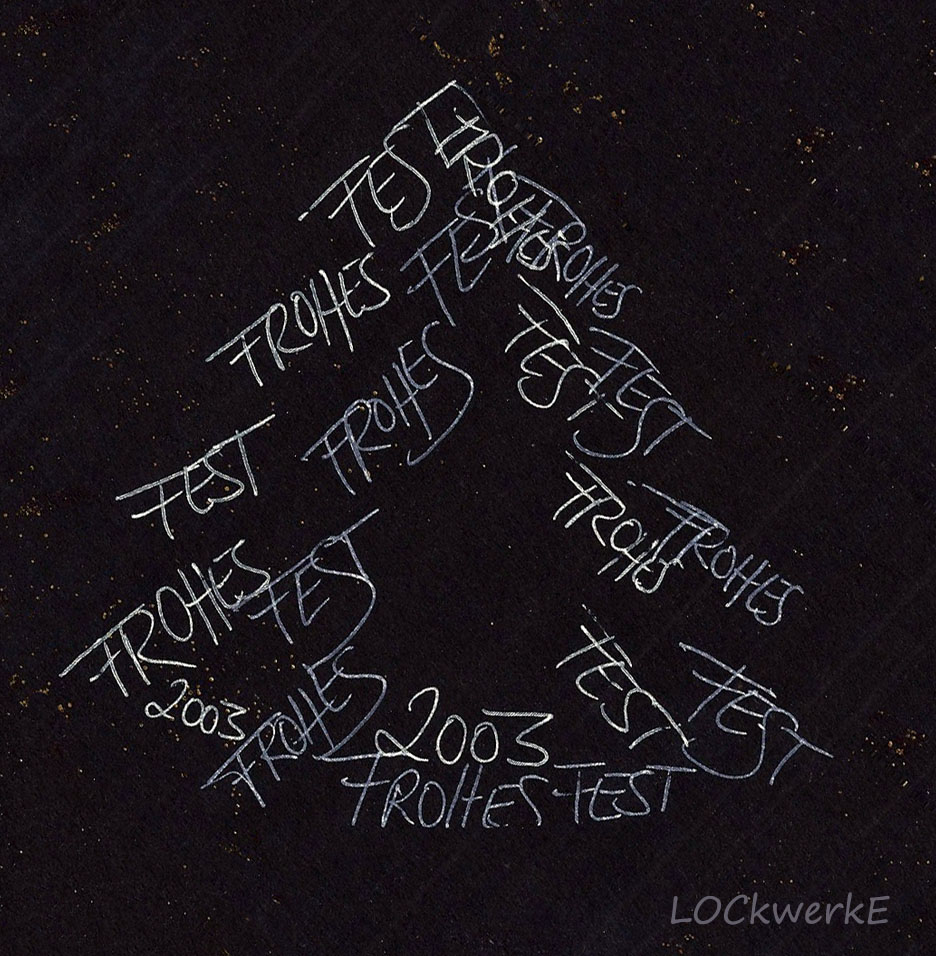 FEST
FROHES
FROHES
FROHES
FEST
FROHES
FEST
FEST
FROHES
FEST
FROHES
FROHES
FROHES
FEST
FEST
FEST
2003
FROHES
2003
FROHES FEST
LOCkwerkE